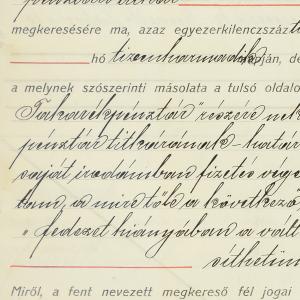 megkeresésére ma, azaz egyezerkilenczszáz
hó tizenharmadik napján, de
a melynek szószerinti másolata a tulsó oldalo
Takarékpénztár" részére nek
pénztár titkárának - határ
saját irodámban fizetés vége
tam, a mire tőle a következő
„ fedezet hiányában a vált
sithetüm
Miről, a fent nevezett megkereső fél jogai